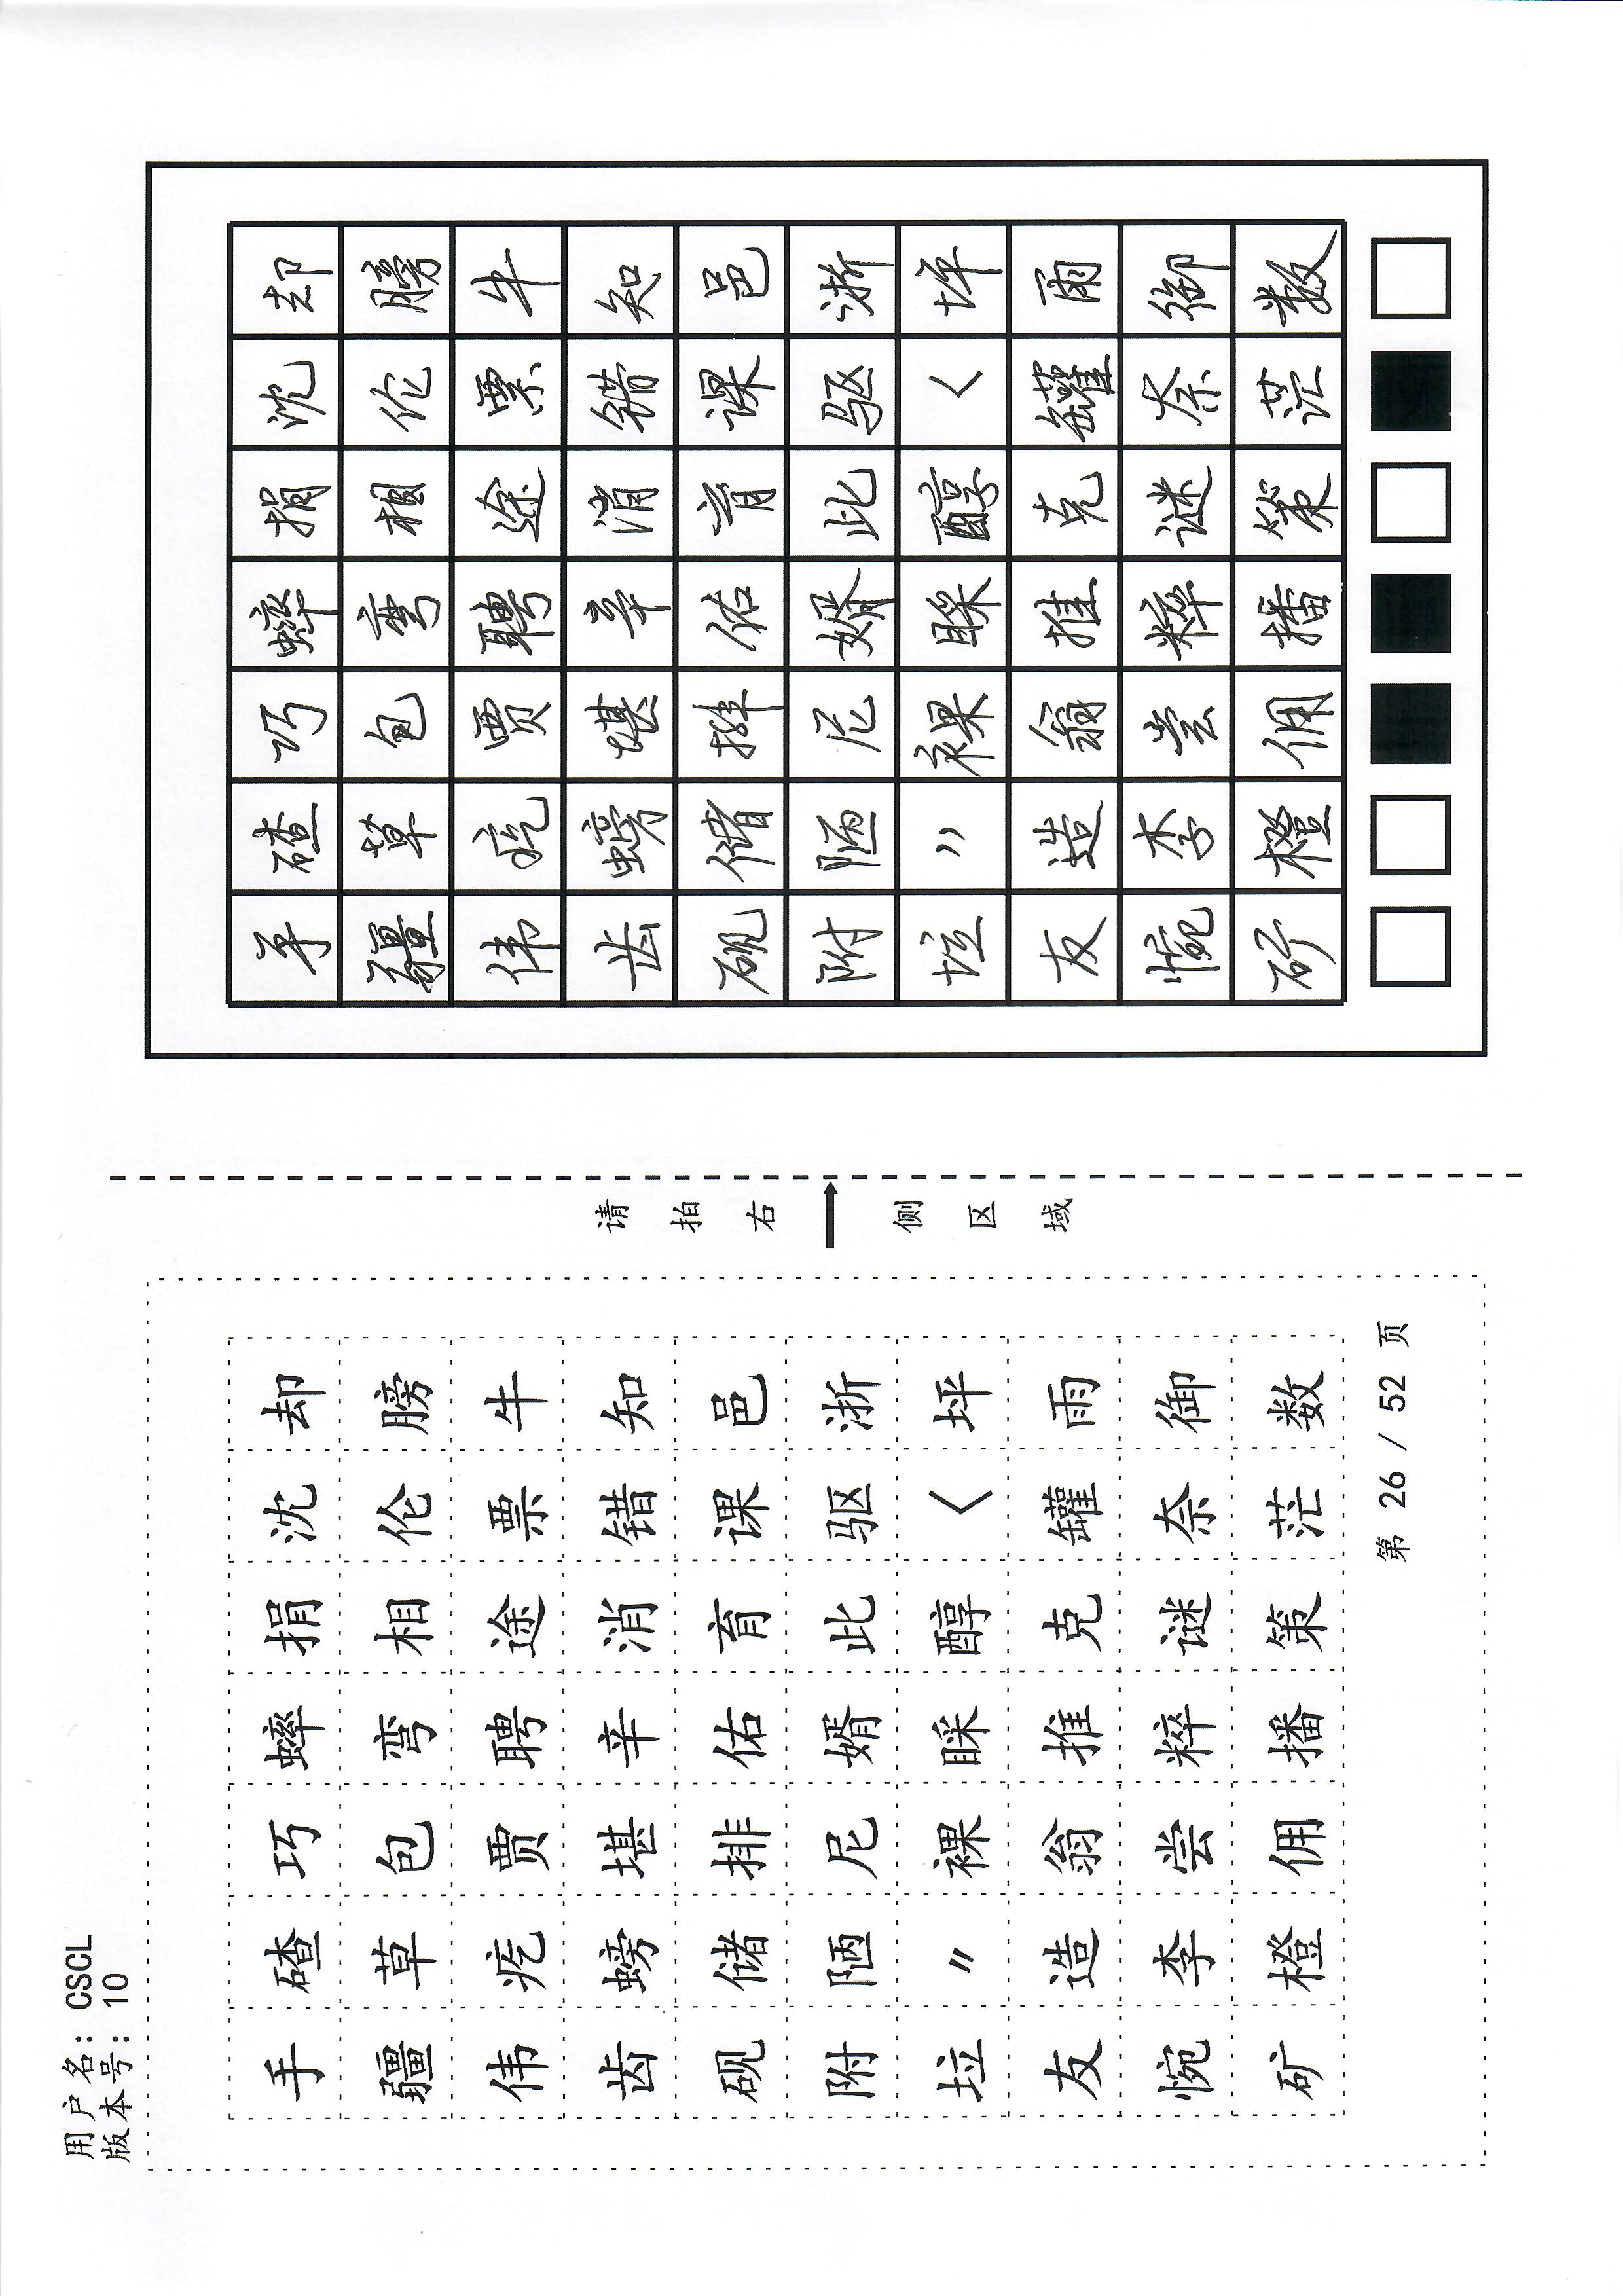 用户名: CSCL
版本号: 10
手碴巧蟀捐沈却
疆草包弯相伦膀
伟疙贾聘途票牛
齿螃堪辛消错知
砚储排佑育课邑
附陋尼婿此驱浙
垃〃裸睬醇〈坪
友造翁推克罐雨
惋李尝粹谜奈御
矿橙佣播策茫数
第 26 / 52 页
请拍右侧区域
手碴巧蟀捐沈却
疆草包弯相伦膀
伟疙贾聘途票牛
齿螃堪辛消错知
砚储排佑育课邑
附陋尼婿此驱浙
垃〃裸睬醇〈坪
友造翁推克罐雨
惋李尝粹谜奈御
矿橙佣播策茫数